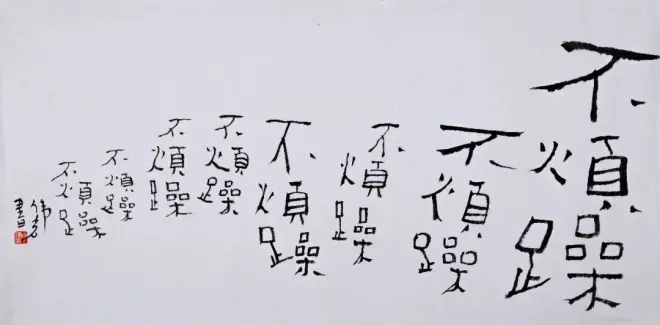 不煩躁
不煩躁
不煩躁
不煩躁
不煩躁
不煩躁
不煩躁
不煩躁
書